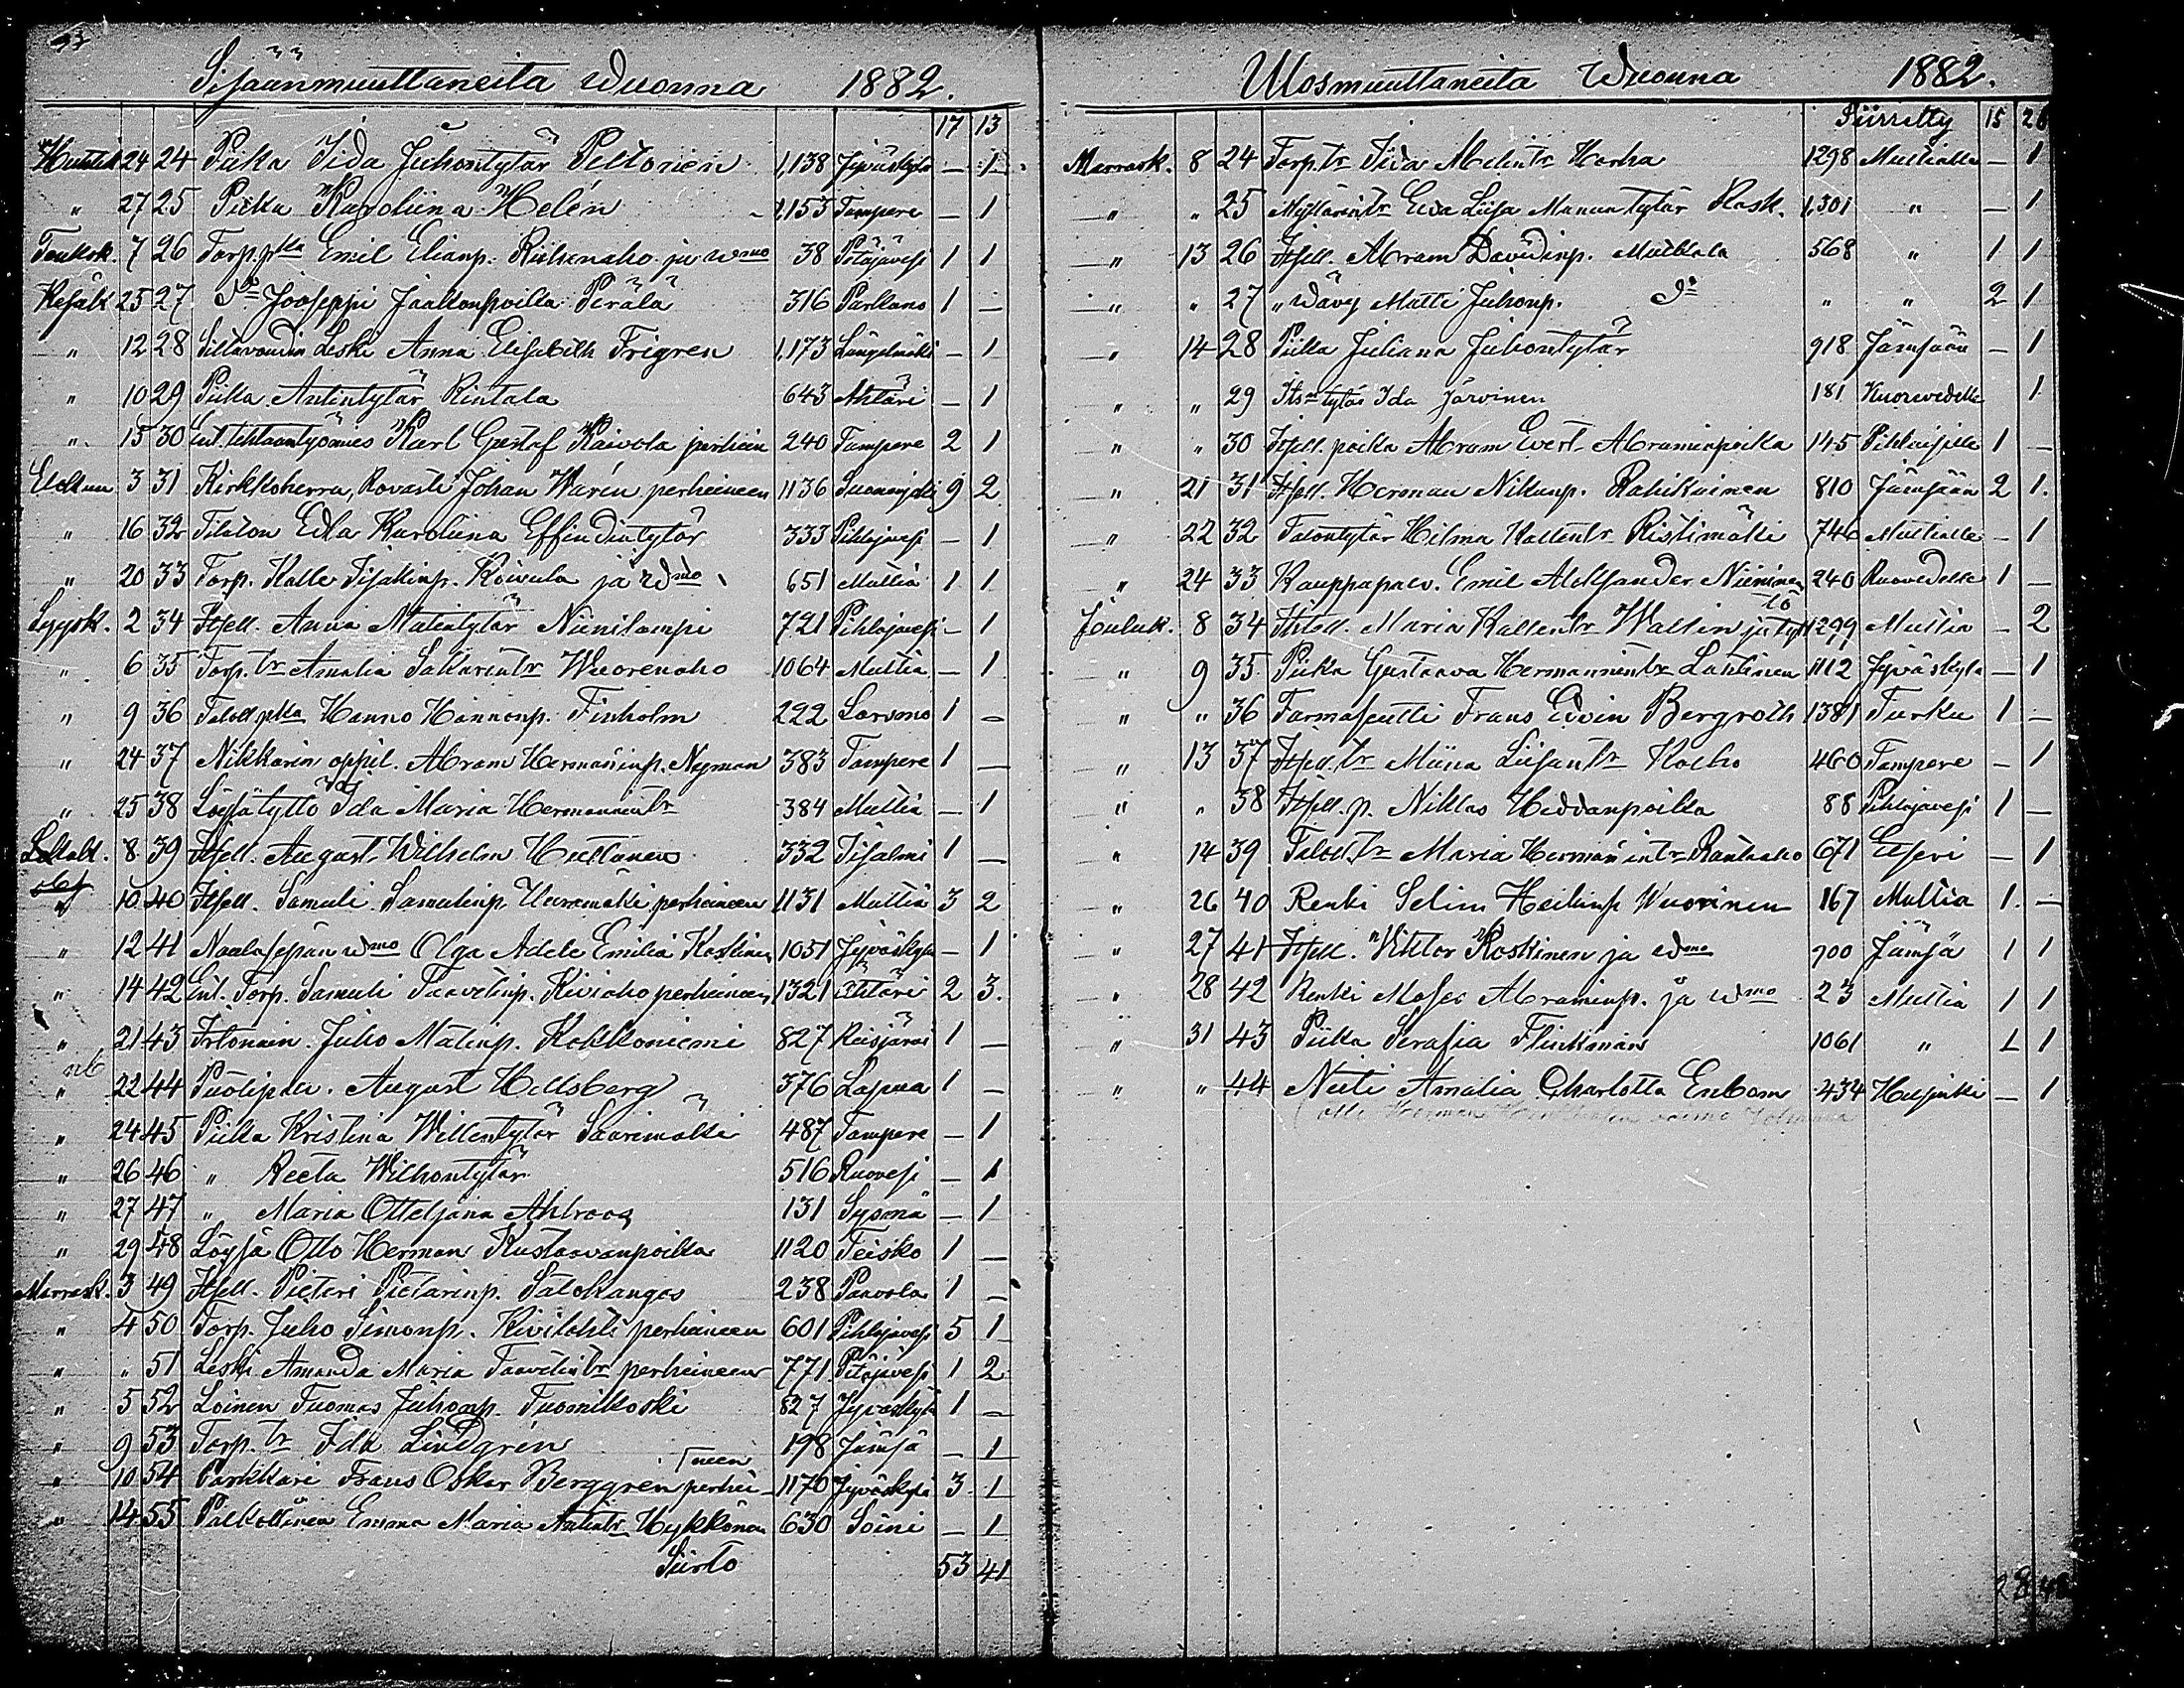 Sisäänmuuttaneita Wuonna 1882.
17 13
Huhtik 24 24 Piika Iida Juhontytär Peltonen 1,138 Jyväskylä — 1
" 27 25 Piika Karoliina Helén 1,153 Tampere — 1
Toukok. 7 26 Torp.pka Emil Elianp. Riihenaho ja wmo 38 Petäjävesi 1 1
Kesäk 25 27 Do Jooseppi Jaakonpoika Perälä 316 Parkano 1 —
" 12 28 Siltavoudin Leski Anna Elisabeth Frigren 1,173 Längelmäki — 1
" 10 29 Piika Antintytär Rintala 643 Ähtäri — 1
" 15 30 Ent. tehtaantyömies Karl Gustaf Kaivola perheineen 240 Tampere 2 1
Elokuu 3 31 Kirkkoherra, Rovasti Johan Warén perheineen 1136 9 2
" 16 32 Edla Karoliina 333 Pihlajavesi — 1
" 20 33 Torp. Kalle Iisakinp. Koivula ja Wmo 651 Multia 1 1
Syysk. 2 34 Itsell. Anna Matintytär Niinilampi 721 Pihlajavesi — 1
" 6 35 Torp. tr Amalia Sakarintr Wuorenaho 1064 Multia — 1
" 9 36 Taloll pka Hanno Hannonp. Finholm 222 Larsmo 1 —
" 24 37 Nikkarin oppil. Abram Hermaninp. Nyman 383 Tampere 1 —
" 25 38 Löysätyttö Ida Maria Hermannintr 384 Multia — 1
Lokak. 8 39 Itsell. August Wilhelm Huttunen 332 Iisalmi 1 —
" 10 40 Itsell. Samuli Samulinp. perheineen 1131 Multia 3 2
" 12 41 Naulasepän wmo Olga Adele Emilia Koskinen 1051 Jyväskylä — 1
" 14 42 Ent. Torp. Samuli Taavetinp. Kiviaho perheineen 1321 Ähtäri 2 3.
" 21 43 Irtonain. Juho Matinp. Kokkoniemi 827 Reisjärvi 1 —
" 22 44 August Hellsberg 376 Lapua 1 —
" 24 45 Piika Kristina Willentytär Saarimäki 487 Tampere — 1
" 26 46 " Reeta Wilhontytär 516 Ruovesi — 1
" 27 47 " Maria Otteljana Ahlroos 131 Sysmä — 1
" 29 48 Löysä Otto Herman Kustaavanpoika 1120 Teisko 1 —
Marrask. 3 49 Itsell. Pieteri Pietarinp. Salokangas 238 Paavola 1 —
" 4 50 Torp. Juho Simonp. Kivilahti perheineen 601 Pihlajavesi 5 1
" " 51 Leski Amanda Maria Taavetintr perheineen 771 Petäjävesi 1 2
" 5 52 Loinen Tuomas Juhonp. Tuomikoski 827 Jyväskylä 1 —
" 9 53 Torp. tr Ida Lindgrén 198 Jämsä — 1
" 10 54 Parkkari Frans Oskar Berggren perhei- neen 1170 Jyväskylä 3 1
" 14 55 Palkollinen Emma Maria Antintr Hykkönen 630 Soini — 1
Siirto 53 41
Ulosmuuttaneita Wuonna 1882.
Piirretty 15 26
Marrask. 8 24 Torp. tr Iida 1298 Multialle — 1
" " 25 Mylläärintr Eva Liisa Manuntytär Rask. 1,301 " — 1
" 13 26 Itsell. Abram Davidinp. Multkala 568 " 1 1
" " 27 " Wävy Matti Juhonp. Do " " 2 1
" 14 28 Piika Juliana Juhontytär 918 Jämsään — 1
" " 29 tytär Ida Järvinen 181 Kuorevedelle 1
" " 30 Itsell. poika Abram Evert Abraminpoika 145 1 —
" 21 31 Itsell. Herman Nikunp. Rahikainen 810 Jämsään 2 1.
" 22 32 Talontytär Hilma Kallentr Ristimäki 746 Multialle — 1
" 24 33 Kauppapalv. Emil Aleksander Nieminen 240 Ruovedelle 1 —
Jouluk. 8 34 Maria Kallentr Wallin ja tyttö 1299 Multia — 2
" 9 35 Piika Gustaava Hermannintr Lahtinen 1112 Jyväskylä — 1
" " 36 Farmaseutti Frans Edvin Bergroth 1381 Turku 1 —
" 13 37 Itsell. tr Miina Liisantr Kolho 460 Tampere — 1
" " 38 Itsell. p. Niklas Heddanpoika 88 Pihlajavesi 1 —
" 14 39 Taloll. tr Maria Hermanintr Rantaaho 671 Etseri — 1
" 26 40 Renki Selim Heikinp Wuorinen 167 Multia 1. —
" 27 41 Itsell. Viktor Koskinen ja wmo 700 Jämsä 1 1
" 28 42 Renki Moses Abraminp. ja wmo 23 Multia 1 1
" 31 43 Piika Serafia Flinkman 1061 " 1 1
" " 44 Neiti Amalia Charlotta Enbom 434 Helsinki — 1